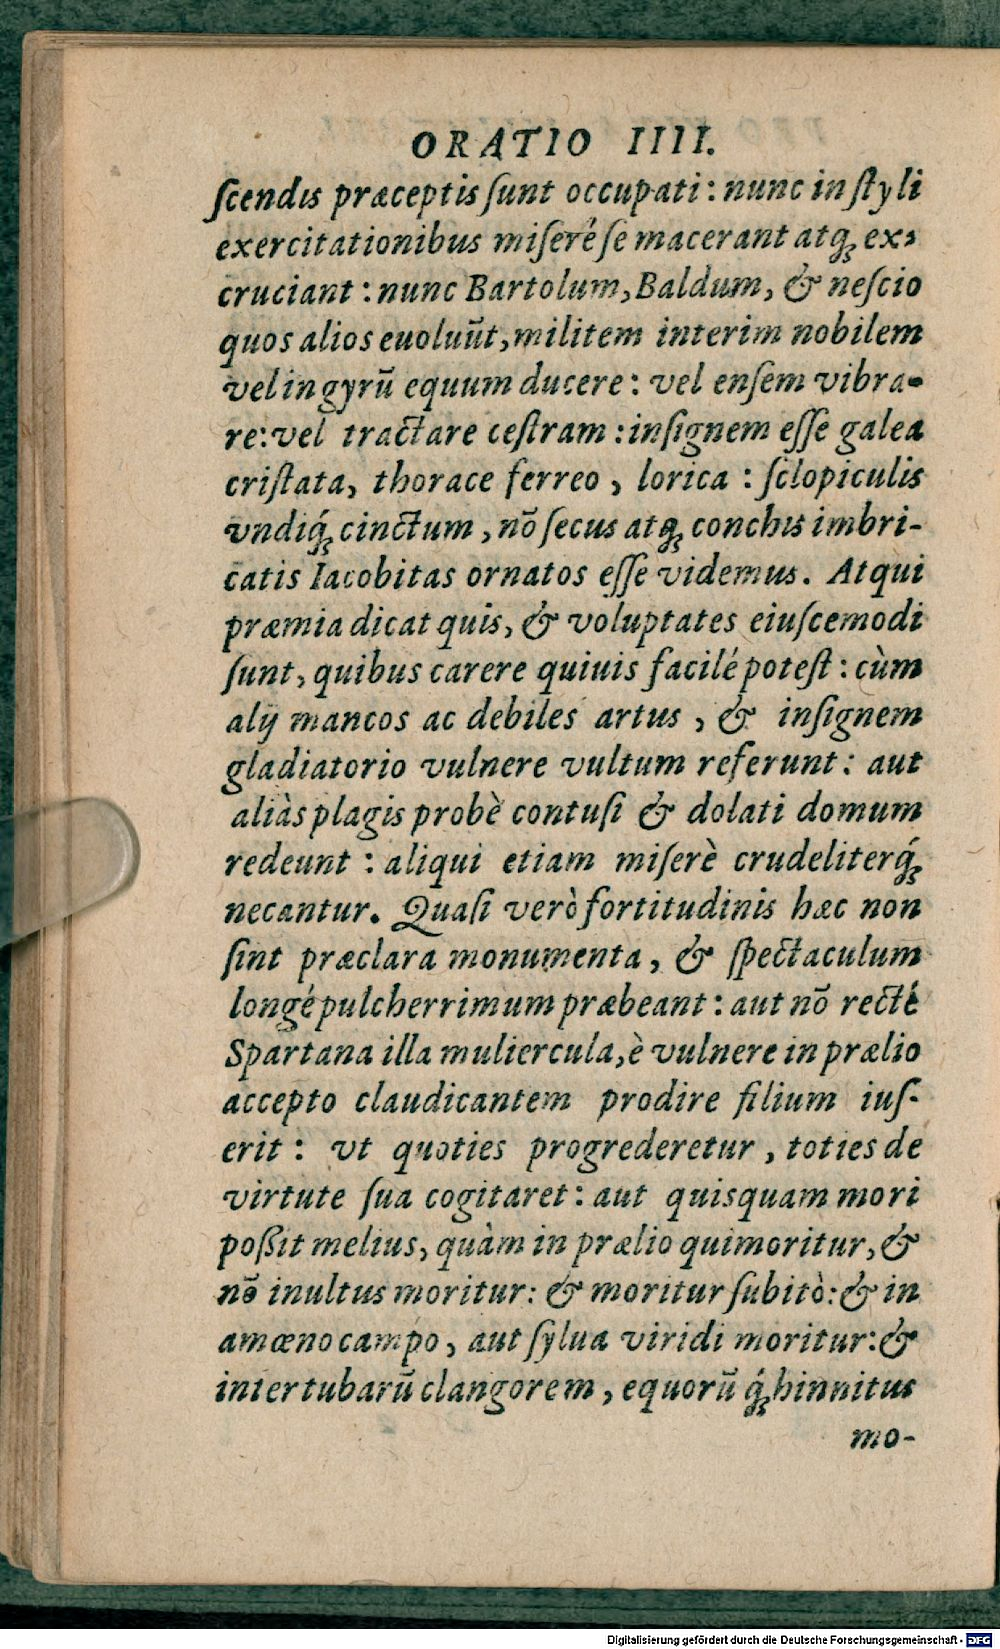 ORATIO IIII.
ſcendis præceptis ſunt occupati: nunc in ſtyli
exercitationibus miſerè ſe macerant atq́ꝫ ex-
cruciant: nunc Bartolum, Baldum, & neſcio
quos alios euoluūt, militem interim nobilem
vel in gyrū equum ducere: vel enſem vibra-
re: vel tractare ceſtram: inſignem eſſe galea
criſtata, thorace ferreo, lorica: ſclopiculis
vndiq́ꝫ cinctum, nō ſecus atq́ꝫ conchis imbri-
catis Iacobitas ornatos eſſe videmus. Atqui
præmia dicat quis, & voluptates eiuſcemodi
ſunt, quibus carere quiuis facilé poteſt: cùm
alij mancos ac debiles artus, & inſignem
gladiatorio vulnere vultum referunt: aut
aliàs plagis probè contuſi & dolati domum
redeunt: aliqui etiam miſerè crudeliterq́ꝫ
necantur. Quaſi verò fortitudinis hæc non
ſint præclara monumenta, & ſpectaculum
longé pulcherrimum præbeant: aut nō recté
Spartana illa muliercula, è vulnere in prælio
accepto claudicantem prodire filium iuſ-
erit: vt quoties progrederetur, toties de
virtute ſua cogitaret: aut quisquam mori
poßit melius, quàm in prælio qui moritur, &
nō inultus moritur: & moritur ſubitò: & in
amœno campo, aut ſylua viridi moritur: &
inter tubarū clangorem, equorū q́ꝫ hinnitus
mo-
Digitalisierung gefördert durch die Deutsche Forschungsgemeinschaft - DFG